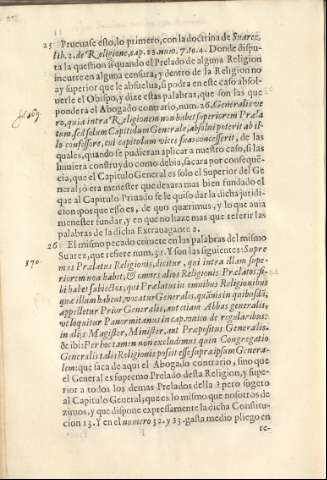 25 Pruevase esto, lo primero, con la doctrina de Suarez,
lib. 2. de Religione, cap. 23. num. 7. to. 4. Donde dispu-
ta la question si quando el Prelado de alguna Religion
incurre en alguna censura, y dentro de la Religion no
ay superior que le absuelua, si podra en este caso absol-
uerle el Obispo, y dize estas palabras, que son las que
pondera el Abogado contrario, num. 26. Generalis ve
ro, quia intra Religionem non habet superiorem Præla
tum, sed solum Capitulum Generale, absolui poterit ab il-
lo confessore, cui capitulum vices suas concesserit, de las
quales, quando se pudieran aplicar a nuestro caso, si las
huuiera construydo como debia, sacara por consequē-
cia, que el Capitulo General es solo el Superior del Ge
neral; ò era menester que dexara mas bien fundado el
que al Capitulo Priuado se le quiso dar la dicha juridi-
cion: porque esso es, de quo quærimus, y lo que auia
menester fundar, y en que no haze mas que referir las
palabras de la dicha Extrauagante 2.
26 El mismo pecado comete en las palabras del mismo
870.
Suarez, que refiere num. 31. Y son las siguientes: Supre
mus Prælatus Religionis, dicitur, qui intra illam supe-
riorem non habet, & omnes alios Religionis Prælatos si-
bi habet subiectos, qui Prælatus in omnibus Religionibus
quæ illum habent, vocatur Generalis, quāuis in quibusdā,
appelletur Prior Generalis, aut etiam Abbas generalis,
vt loquitur Panormitanus in cap.
in alijs Magister, Minister, aut Præpositus Generalis.
& ibi: Per hoc tamen non excludimus quin Congregatio
Generalis talis Religionis possit esse supra ipsum Genera-
lem: que saca de aqui el Abogado contrario, sino que
el General es supremo Prelado desta Religion, y supe-
rior a todos los demas Prelados della? pero sugeto
al Capitulo General; que es lo mismo que nosotros de
zimos, y que dispone expressamente la dicha Constitu-
cion 13. Y en el numero 32. y 33. gasta medio pliego en
re-